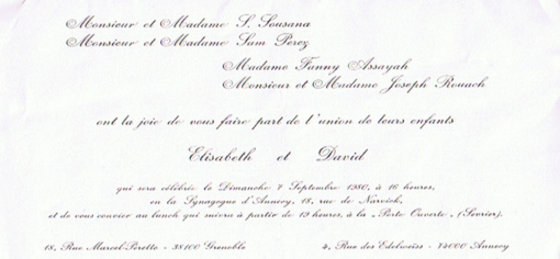 Monsieur et Madame S. Sousana
Monsieur et Madame Sam Perez
Madame Fanny Assayah
Monsieur et Madame Joseph Rouach
ont la joie de vous faire part de l'union de leurs enfants
Elisabeth et David
qui sera célébrée le Dimanche 7 Septembre 1980, à 16 heures,
en la Synagogue d'Annecy, 18, rue de Narvick,
et de vous convier au lunch qui suivra à partir de 19 heures, à la « Porte Ouverte » (Sevrier).
18, Rue Marcel-Peretto - 38100 Grenoble
4, Rue des Edelweiss - 74000 Annecy